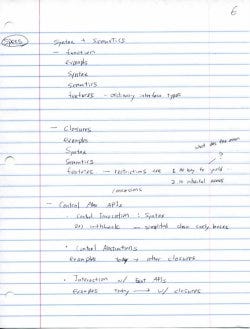 6
Specs
Syntax + Semantics
- function
Examples
Syntax
Semantics
features - ordinary interface types
- Closures
Examples
what does this mean?
Syntax
Semantics
features - restrictions are 1 no way to yield
2 no inherited names
conversions
- Control Flow APIs
• Control Invocation: Syntax
withhooks - simplified
early breaks
• Control Abstractions
Examples today → other closures
• Interaction w/ Exist APIs
Examples today → w/ closures